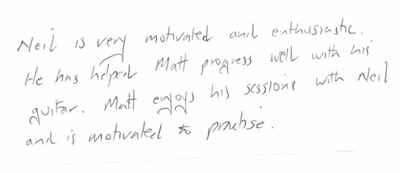 Neil is very motivated and enthusiastic.
He has helped Matt progress well with his
guitar. Matt enjoys his sessions with Neil
and is motivated to practise.